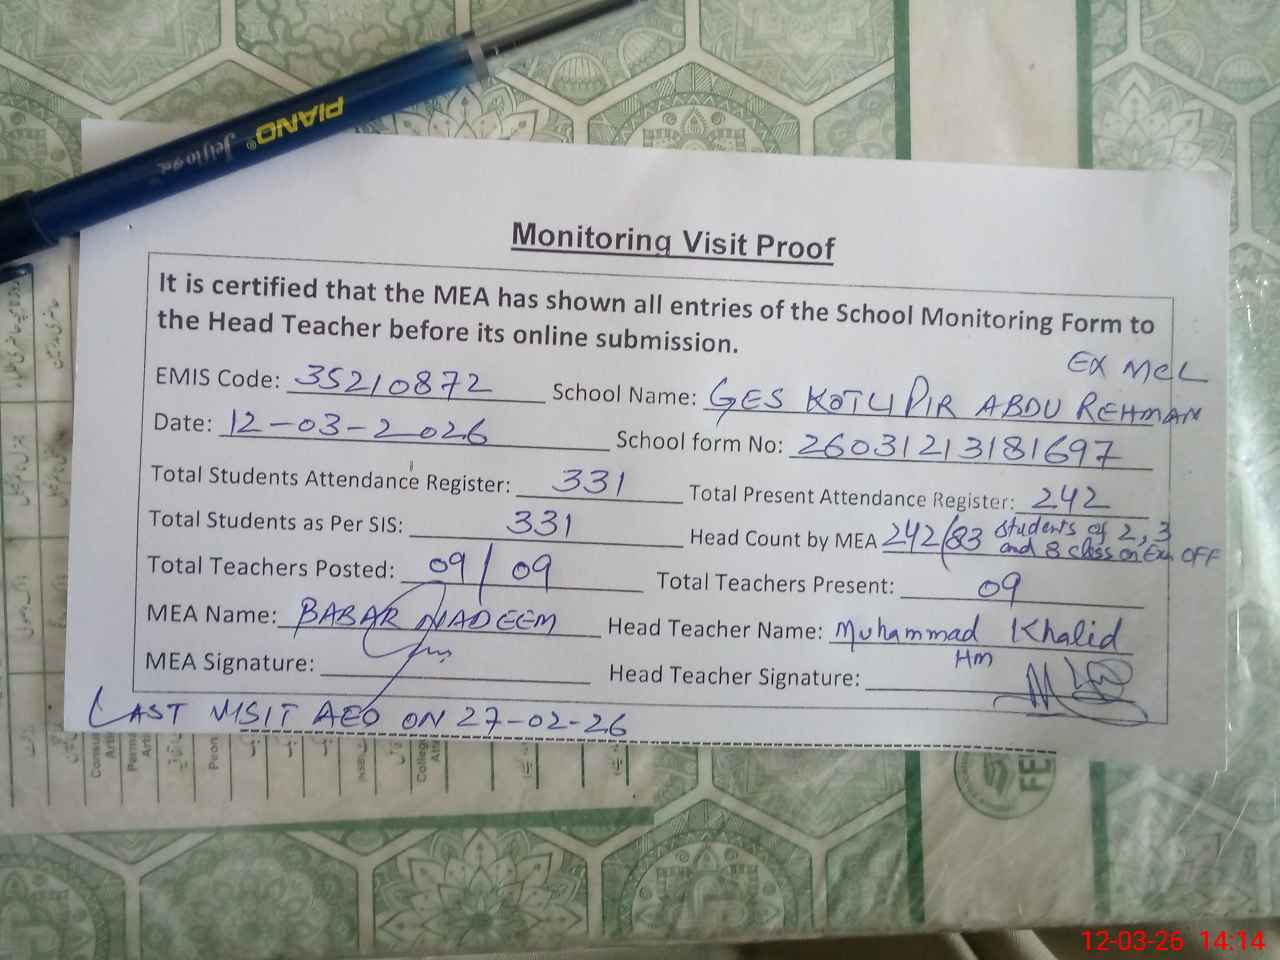 PIANO®
Monitoring Visit Proof
It is certified that the MEA has shown all entries of the School Monitoring Form to
the Head Teacher before its online submission.
EX MCL
EMIS Code: 35210872 School Name: GES KOTLI PIR ABDU REHMAN
Date: 12-03-2026 School form No: 26031213181697
Total Students Attendance Register: 331 Total Present Attendance Register: 242
Total Students as Per SIS: 331 Head Count by MEA 242/83 students of 2, 3
and 8 class on Ex OFF
Total Teachers Posted: 09/09 Total Teachers Present: 09
MEA Name: BABAR NADEEM Head Teacher Name: Muhammad Khalid
HM
MEA Signature: Head Teacher Signature:
LAST VISIT AEO ON 27-02-26
Peon
FE
12-03-26 14:14